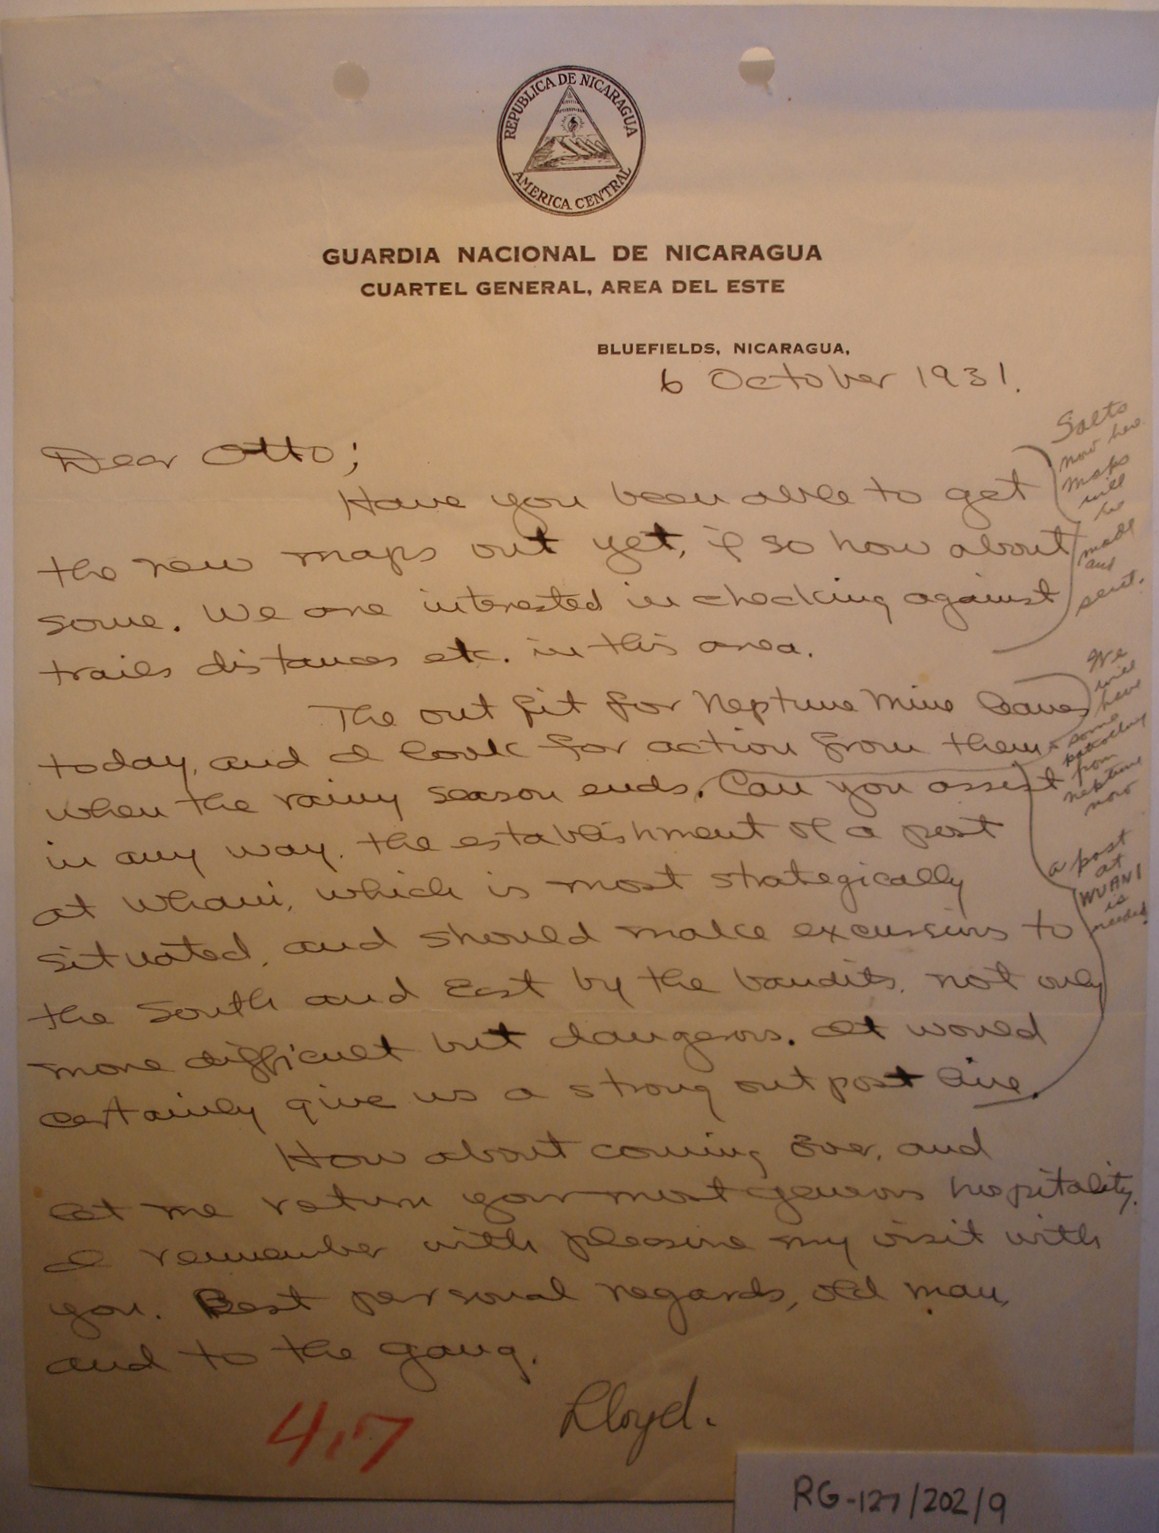 REPUBLICA DE NICARAGUA
AMERICA CENTRAL
GUARDIA NACIONAL DE NICARAGUA
CUARTEL GENERAL, AREA DEL ESTE
BLUEFIELDS, NICARAGUA,
6 October 1931.
Dear Otto;
Have you been able to get
the new maps out yet, if so how about
some. We are interested in checking against
trails distances etc. in this area.
The out fit for Neptune Mine leaves
today, and I look for action from them
when the rainy season ends. Can you assist
in any way. the establishment of a post
at Uhani, which is most strategically
situated, and should make excursions to
the South and East by the bandits, not only
more difficult but dangerous. It would
certainly give us a strong outpost line.
How about coming over, and
let me return your most generous hospitality.
I remember with pleasure my visit with
you. Best personal regards, old man,
and to the gang.
Lloyd.
Salto
now here
maps
will
be
made
and
sent.
We
will
have
some
patrolling
from
neptune
now
a post
at
WUANI
is
needed
4,7
RG-127/202/9